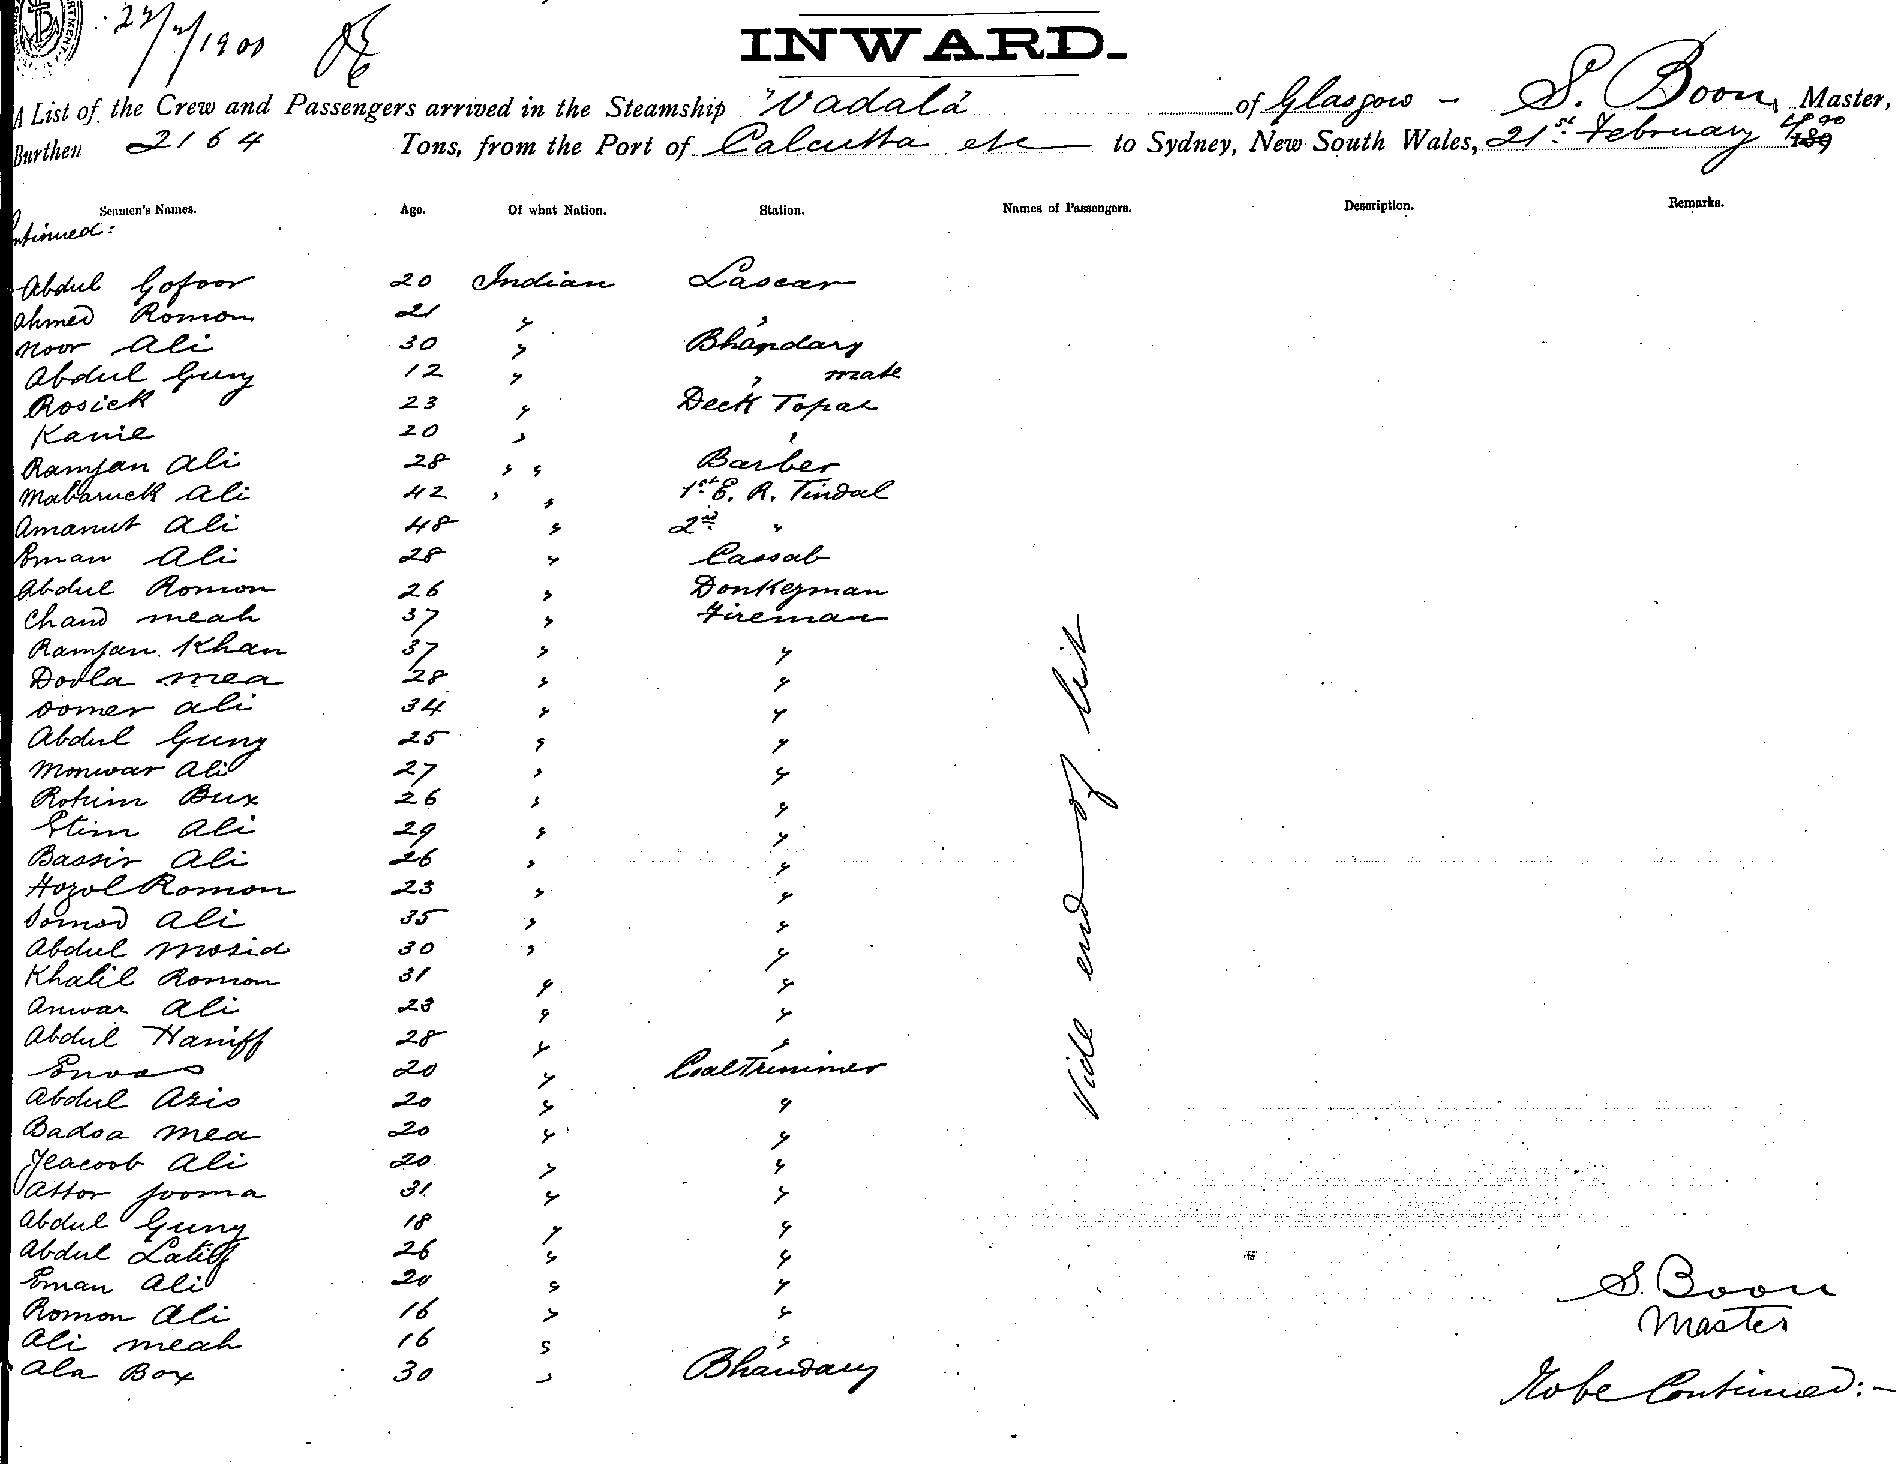 22/2/1900
INWARD.
A List of the Crew and Passengers arrived in the Steamship "Vadala" of Glasgow – S. Boon, Master,
Burthen 2164 Tons, from the Port of Calcutta etc to Sydney, New South Wales, 21st February 1900
Seamen's Names. Age. Of what Nation. Station. Names of Passengers. Description. Remarks.
ntinued:
Abdul Gofoor 20 Indian Lascar
Ahmed Romon 21 " "
Noor Ali 30 " Bhandary
Abdul Guny 12 " " mate
Rosick 23 " Deck Topas
Kanie 20 " "
Ramjan Ali 28 " " Barber
Mabaruck Ali 42 " " 1st E. R. Tindal
Amanut Ali 48 " 2nd "
Eman Ali 28 " Cassab
Abdul Romon 26 " Donkeyman
Chand meah 37 " Fireman
Ramjan Khan 37 " "
Doola mea 28 " "
Oomer Ali 34 " "
Abdul Guny 25 " "
Monwar Ali 27 " "
Rohim Bux 26 " "
Etim Ali 29 " "
Bassir Ali 26 " "
Hozol Romon 23 " "
Somod Ali 35 " "
Abdul Mosid 30 " "
Khalil Romon 31 " "
Anwar Ali 23 " "
Abdul Haniff 28 " "
Enoas 20 " Coaltrimmer
Abdul Azis 20 " "
Badsa Mea 20 " "
Yeacoob Ali 20 " "
Attor Jooma 31 " "
Abdul Guny 18 " "
Abdul Latiff 26 " "
Eman Ali 20 " "
Romon Ali 16 " "
Ali meah 16 " "
Ala Box 30 " Bhandary
Vide end of list
S. Boon
Master
To be Continued:–